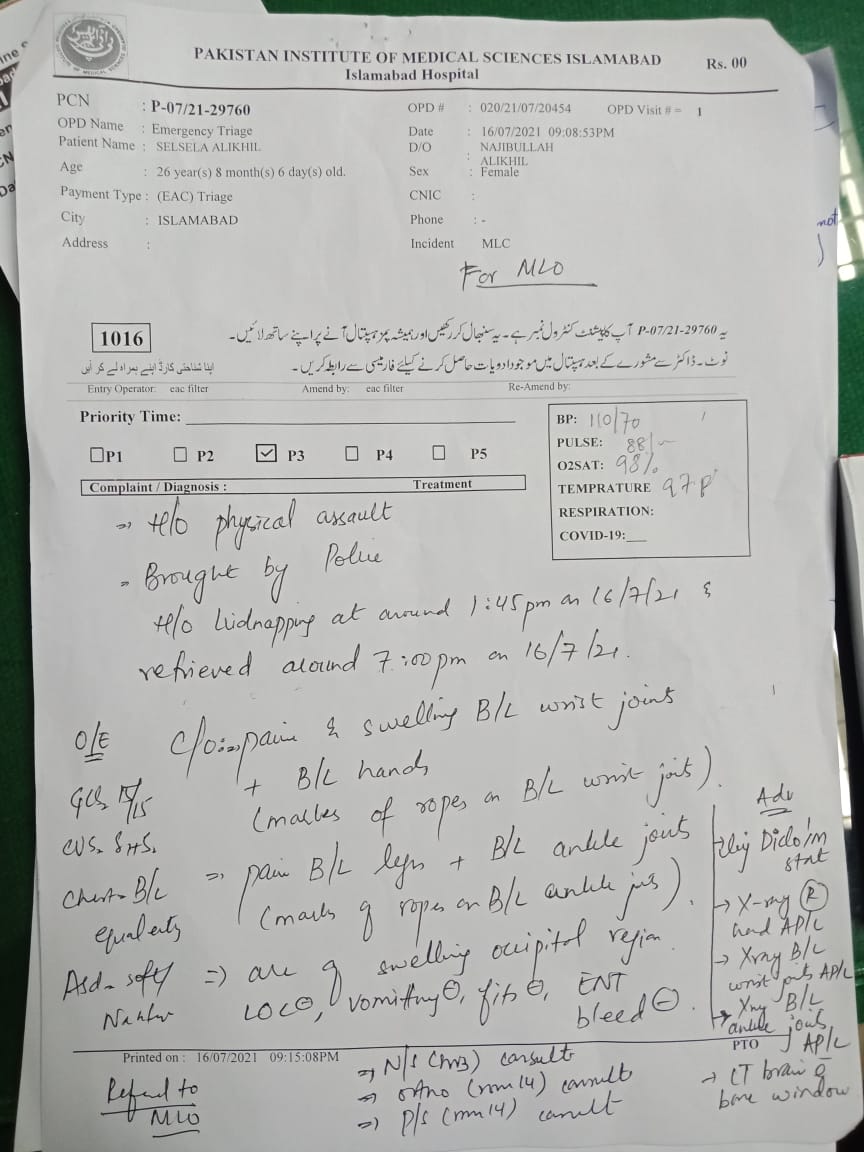 PAKISTAN INSTITUTE OF MEDICAL SCIENCES ISLAMABAD
Islamabad Hospital
Rs. 00
PCN : P-07/21-29760
OPD # : 020/21/07/20454 OPD Visit # = 1
OPD Name : Emergency Triage
Date : 16/07/2021 09:08:53PM
Patient Name : SELSELA ALIKHIL
D/O : NAJIBULLAH ALIKHIL
Age : 26 year(s) 8 month(s) 6 day(s) old.
Sex : Female
Payment Type : (EAC) Triage
CNIC :
City : ISLAMABAD
Phone : -
Address :
Incident MLC
For MLO
not
1016
یہ P-07/21-29760 آپ کا پیشنٹ کنٹرول نمبر ہے۔ یہ سنبھال کر رکھیں اور ہمیشہ پمز ہسپتال آنے پر اپنے ساتھ لائیں۔
نوٹ۔ ڈاکٹر سے مشورے کے بعد ہسپتال میں موجود ادویات حاصل کرنے کیلئے فارمیسی سے رابطہ کریں۔
اپنا شناختی کارڈ اپنے ہمراہ لے کر آئیں
Entry Operator: eac filter Amend by: eac filter Re-Amend by:
Priority Time:
P1 P2 P3 P4 P5
BP: 110/70
PULSE: 88/
O2SAT: 98%
TEMPRATURE 97 F
RESPIRATION:
COVID-19:
Complaint / Diagnosis : Treatment
⇒ H/o physical assault
- Brought by Police
H/o kidnapping at around 1:45pm on 16/7/21 &
retrieved around 7:00pm on 16/7/21.
O/E
C/o:⇒ pain & swelling B/L wrist joints
+ B/L hands
(marks of ropes on B/L wrist joits).
GCS 15/15
CVS. S1+S2
⇒ pain B/L legs + B/L ankle joints
(marks of ropes on B/L ankle jts).
Chest- B/L
equal
Abd- soft
⇒ are of swelling occipital region.
LOC⊖, vomitting⊖, fits⊖, ENT
bleed ⊖.
Adv
Inj Diclo i/m
stat
→ X-ray (R)
hand AP/L
→ Xray B/L
wrist joints AP/L
→ Xray B/L
ankle joints
AP/L
PTO
→ CT brain
bone window
Printed on : 16/07/2021 09:15:08PM
⇒ N/S consult
⇒ ortho (rm 14) consult
⇒ P/S (rm 14) consult
Referred to
MLO